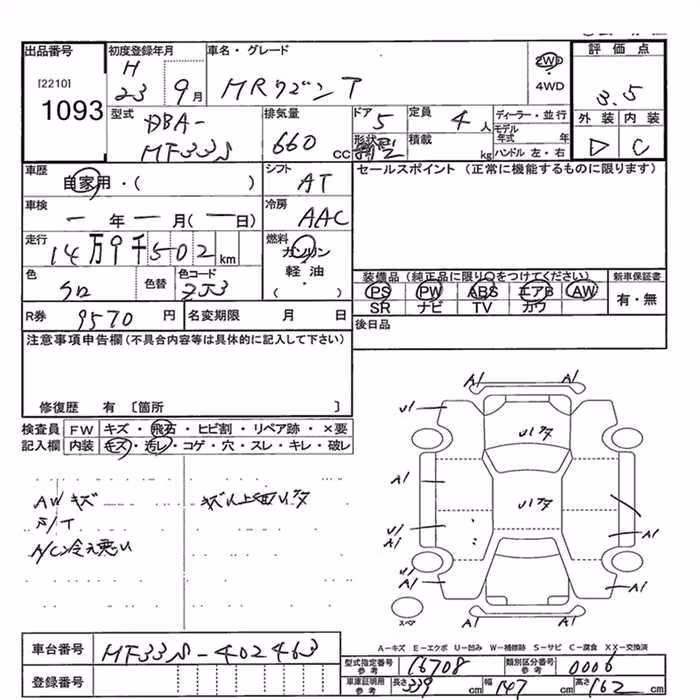 出品番号 初度登録年月 車名・グレード 2WD 評価点
[2210] H ・
1093 23 9月 MRワゴン T 4WD 3.5
型式 排気量 ドア 定員 ディーラー・並行 外装 内装
DBA- 660 CC 5 4人 モデル年式 年 D C
MF33S 形状 積載 kg ハンドル 左・右
車歴 シフト セールスポイント (正常に機能するものに限ります)
自家用・( ) AT
車検 冷房
ー年ー月(ー日) AAC
走行 燃料
14万9千502km ガソリン
色 色替 色コード 軽油 装備品(純正品に限り○をつけてください) 新車保証書
シロ ZJ3 ・( ) PS PW ABS エアB AW 有・無
SR ナビ TV カワ
R券 9570円 名変期限 月 日 後日品
注意事項申告欄(不具合内容等は具体的に記入して下さい)
修復歴 有 〔箇所 〕
検査員 FW キズ・飛石・ヒビ割・リペア跡・×要
記入欄 内装 キズ・汚レ・コゲ・穴・スレ・キレ・破レ
AWキズ
A/C冷え悪い
A1 A1
U1
U1
A1
U1
U1
A1 A1
A1 A1
A1 A1
スペア
A-キズ E-エクボ U-凹み W-補修跡 S-サビ C-腐食 XX-交換済
車台番号 MF33S-402463
型式指定番号 参考 16708 類別区分番号 参考 0006
登録番号 車庫証明用 参考 長さ 339cm 幅 147cm 高さ 162cm